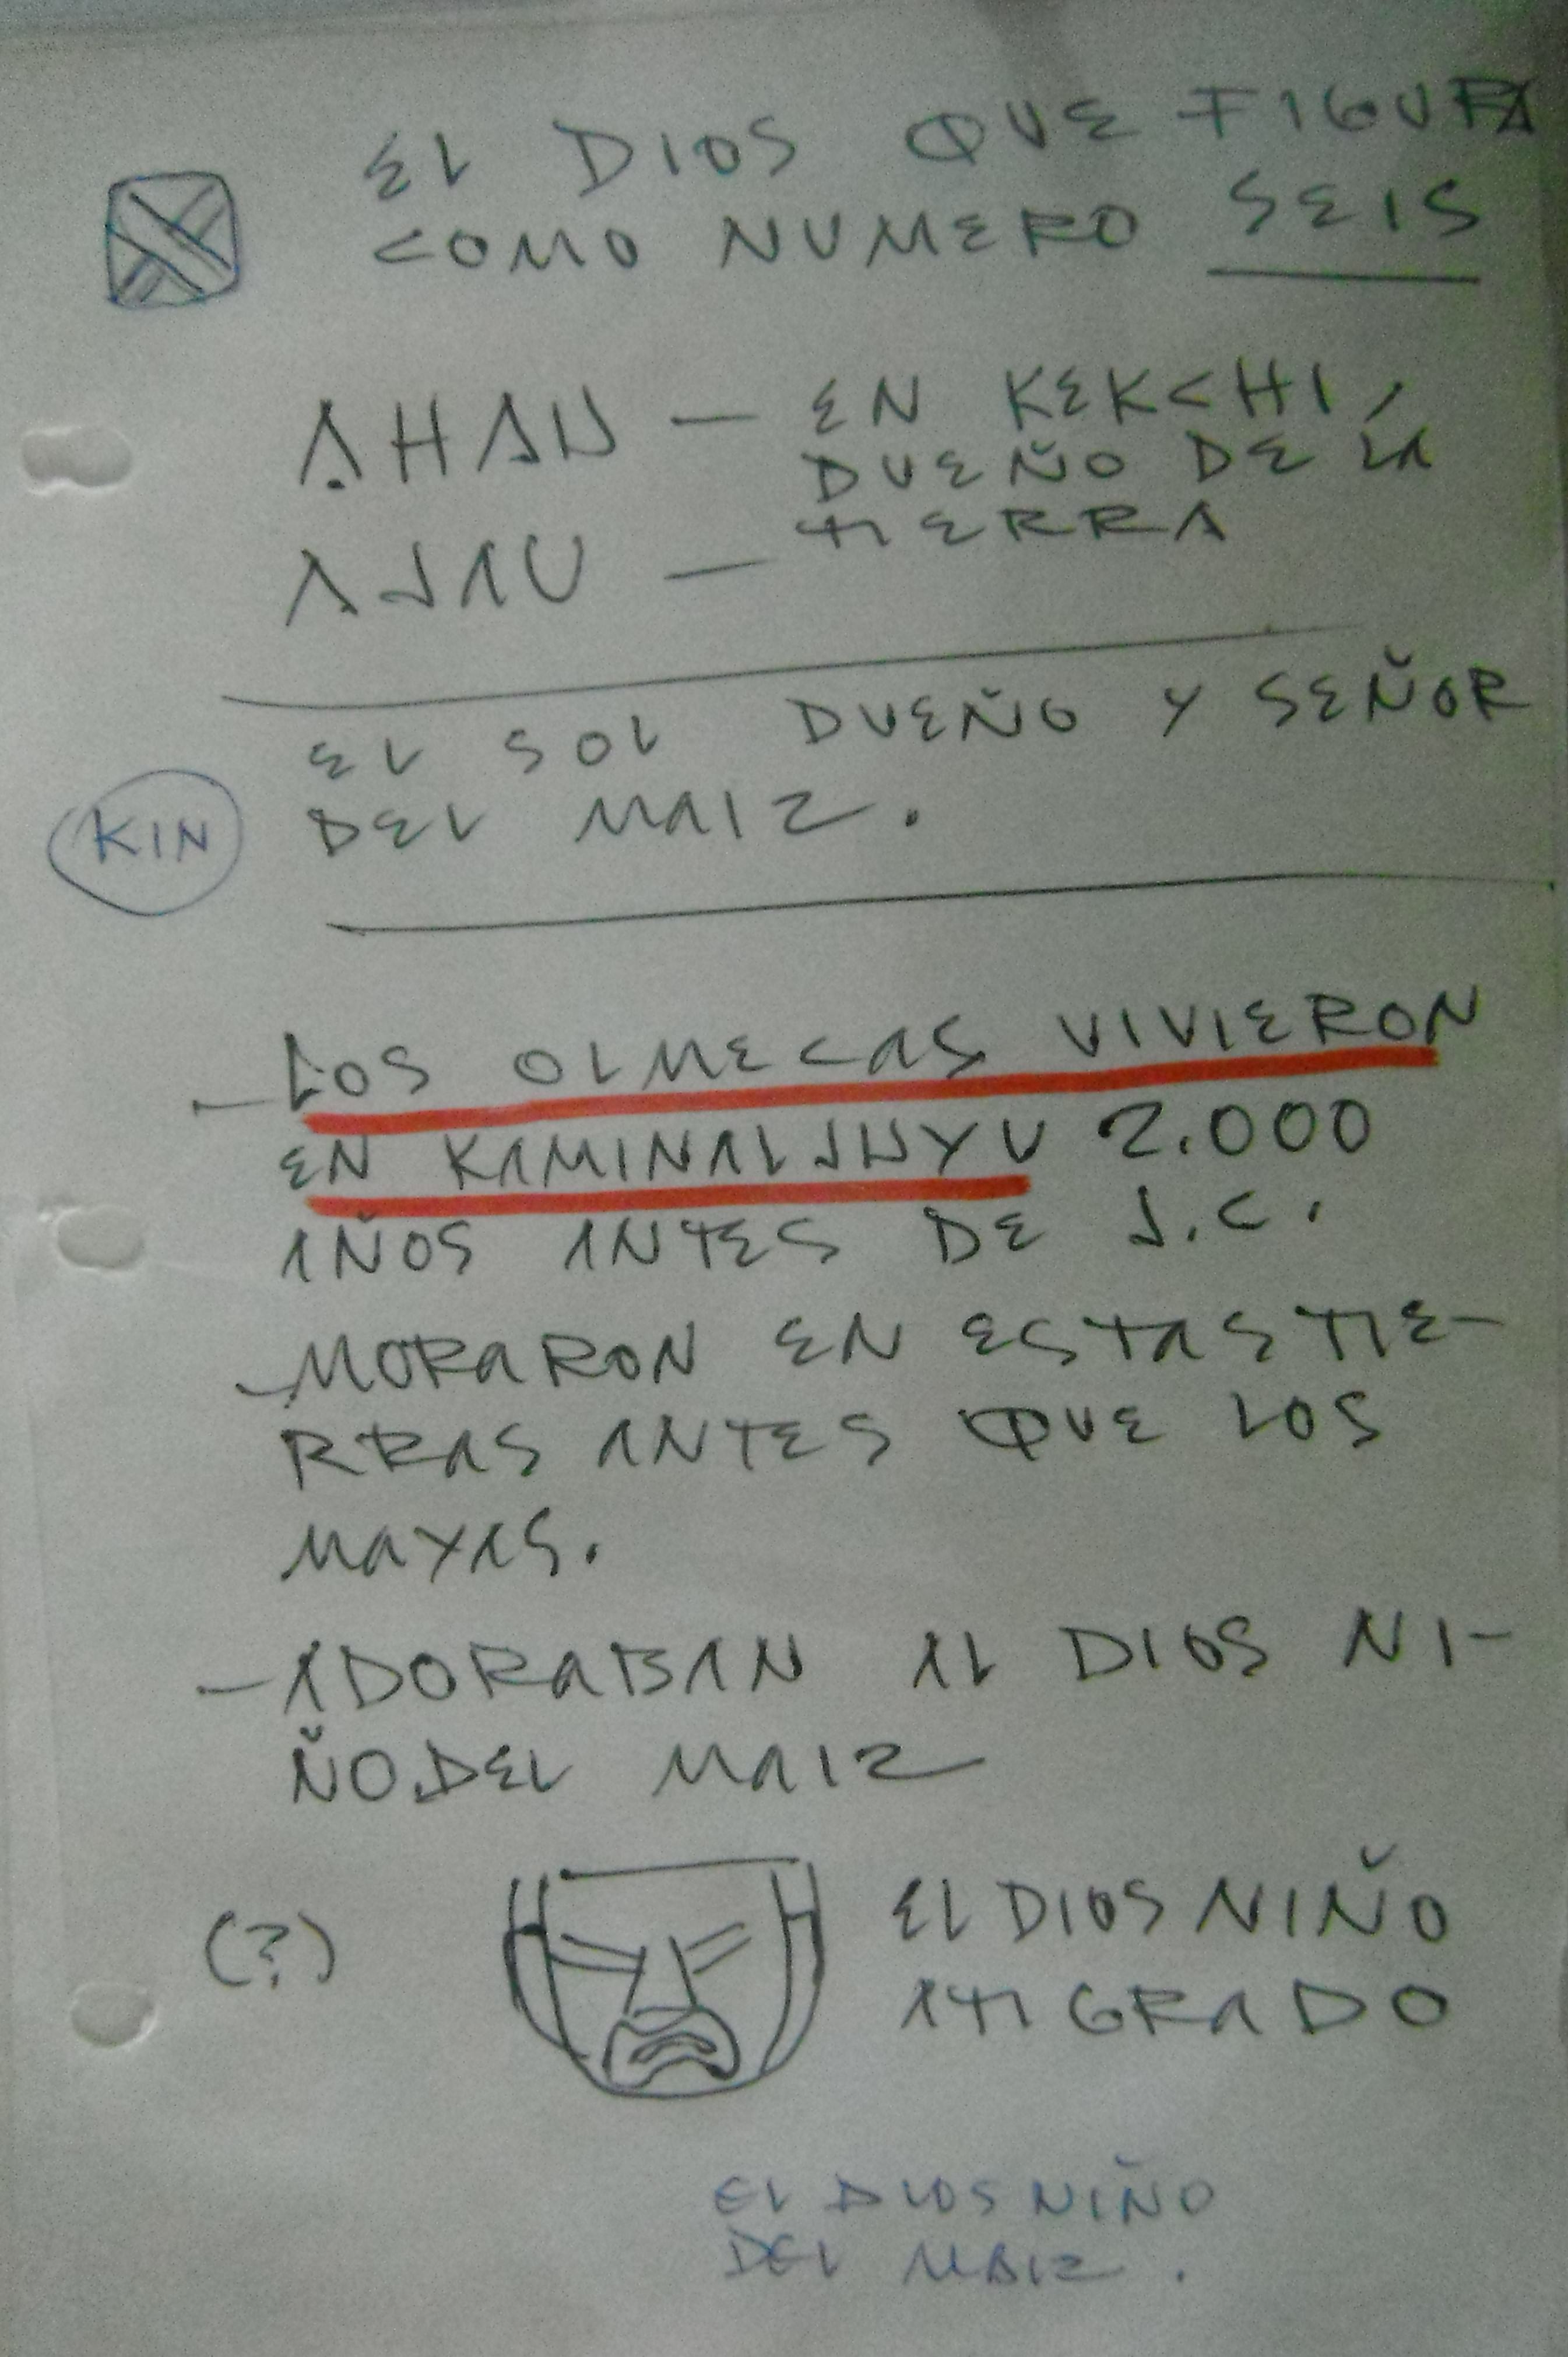 EL DIOS QUE FIGURA
COMO NUMERO SEIS
AHAU — EN KEKCHI,
DUEÑO DE LA
TIERRA
AJAU —
EL SOL DUEÑO Y SEÑOR
KIN
DEL MAIZ.
— LOS OLMECAS VIVIERON
EN KAMINALJUYU 2.000
AÑOS ANTES DE J.C.
— MORARON EN ESTAS TIE-
RRAS ANTES QUE LOS
MAYAS.
— ADORABAN AL DIOS NI-
ÑO DEL MAIZ
(?)
EL DIOS NIÑO
ATIGRADO
EL DIOS NIÑO
DEL MAIZ.